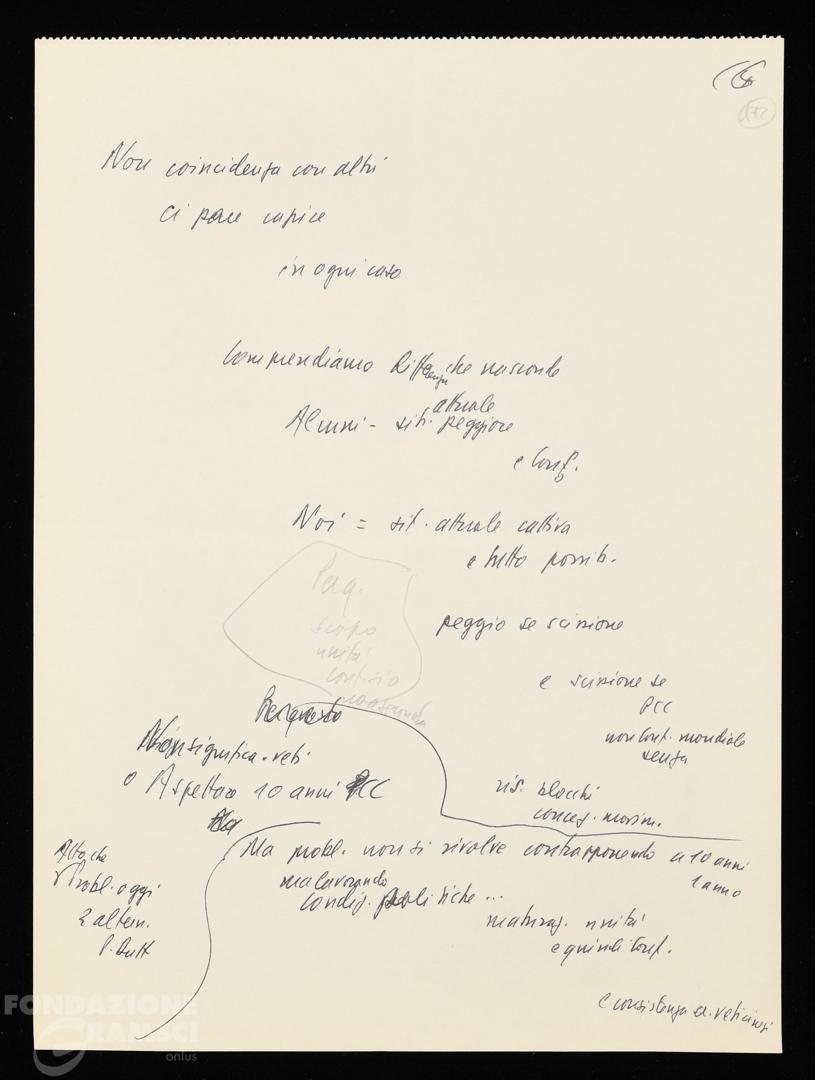 172
Non coincidenza con altri
Ci pare capire
in ogni caso
Comprendiamo differenza che nasconde
attuale
Alcuni - sit. peggiore
e Conf.
Noi = sit. attuale cattiva
e tutto possib.
Perq.
scopo
unità
peggio se scissione
e scissione se
PCC
non Conf. mondiale
senza
Per questo
Non significa veti
o Aspettare 10 anni PCC
ris. blocchi
concez. movim.
Ma
Ma probl. non si risolve contrapponendo a 10 anni
1 anno
ma lavorando
condiz. politiche ...
maturaz. unità
e quindi Conf.
Altro che
Probl. oggi
2 altern.
P. Dutt
e consistenza
FONDAZIONE
GRAMSCI
onlus